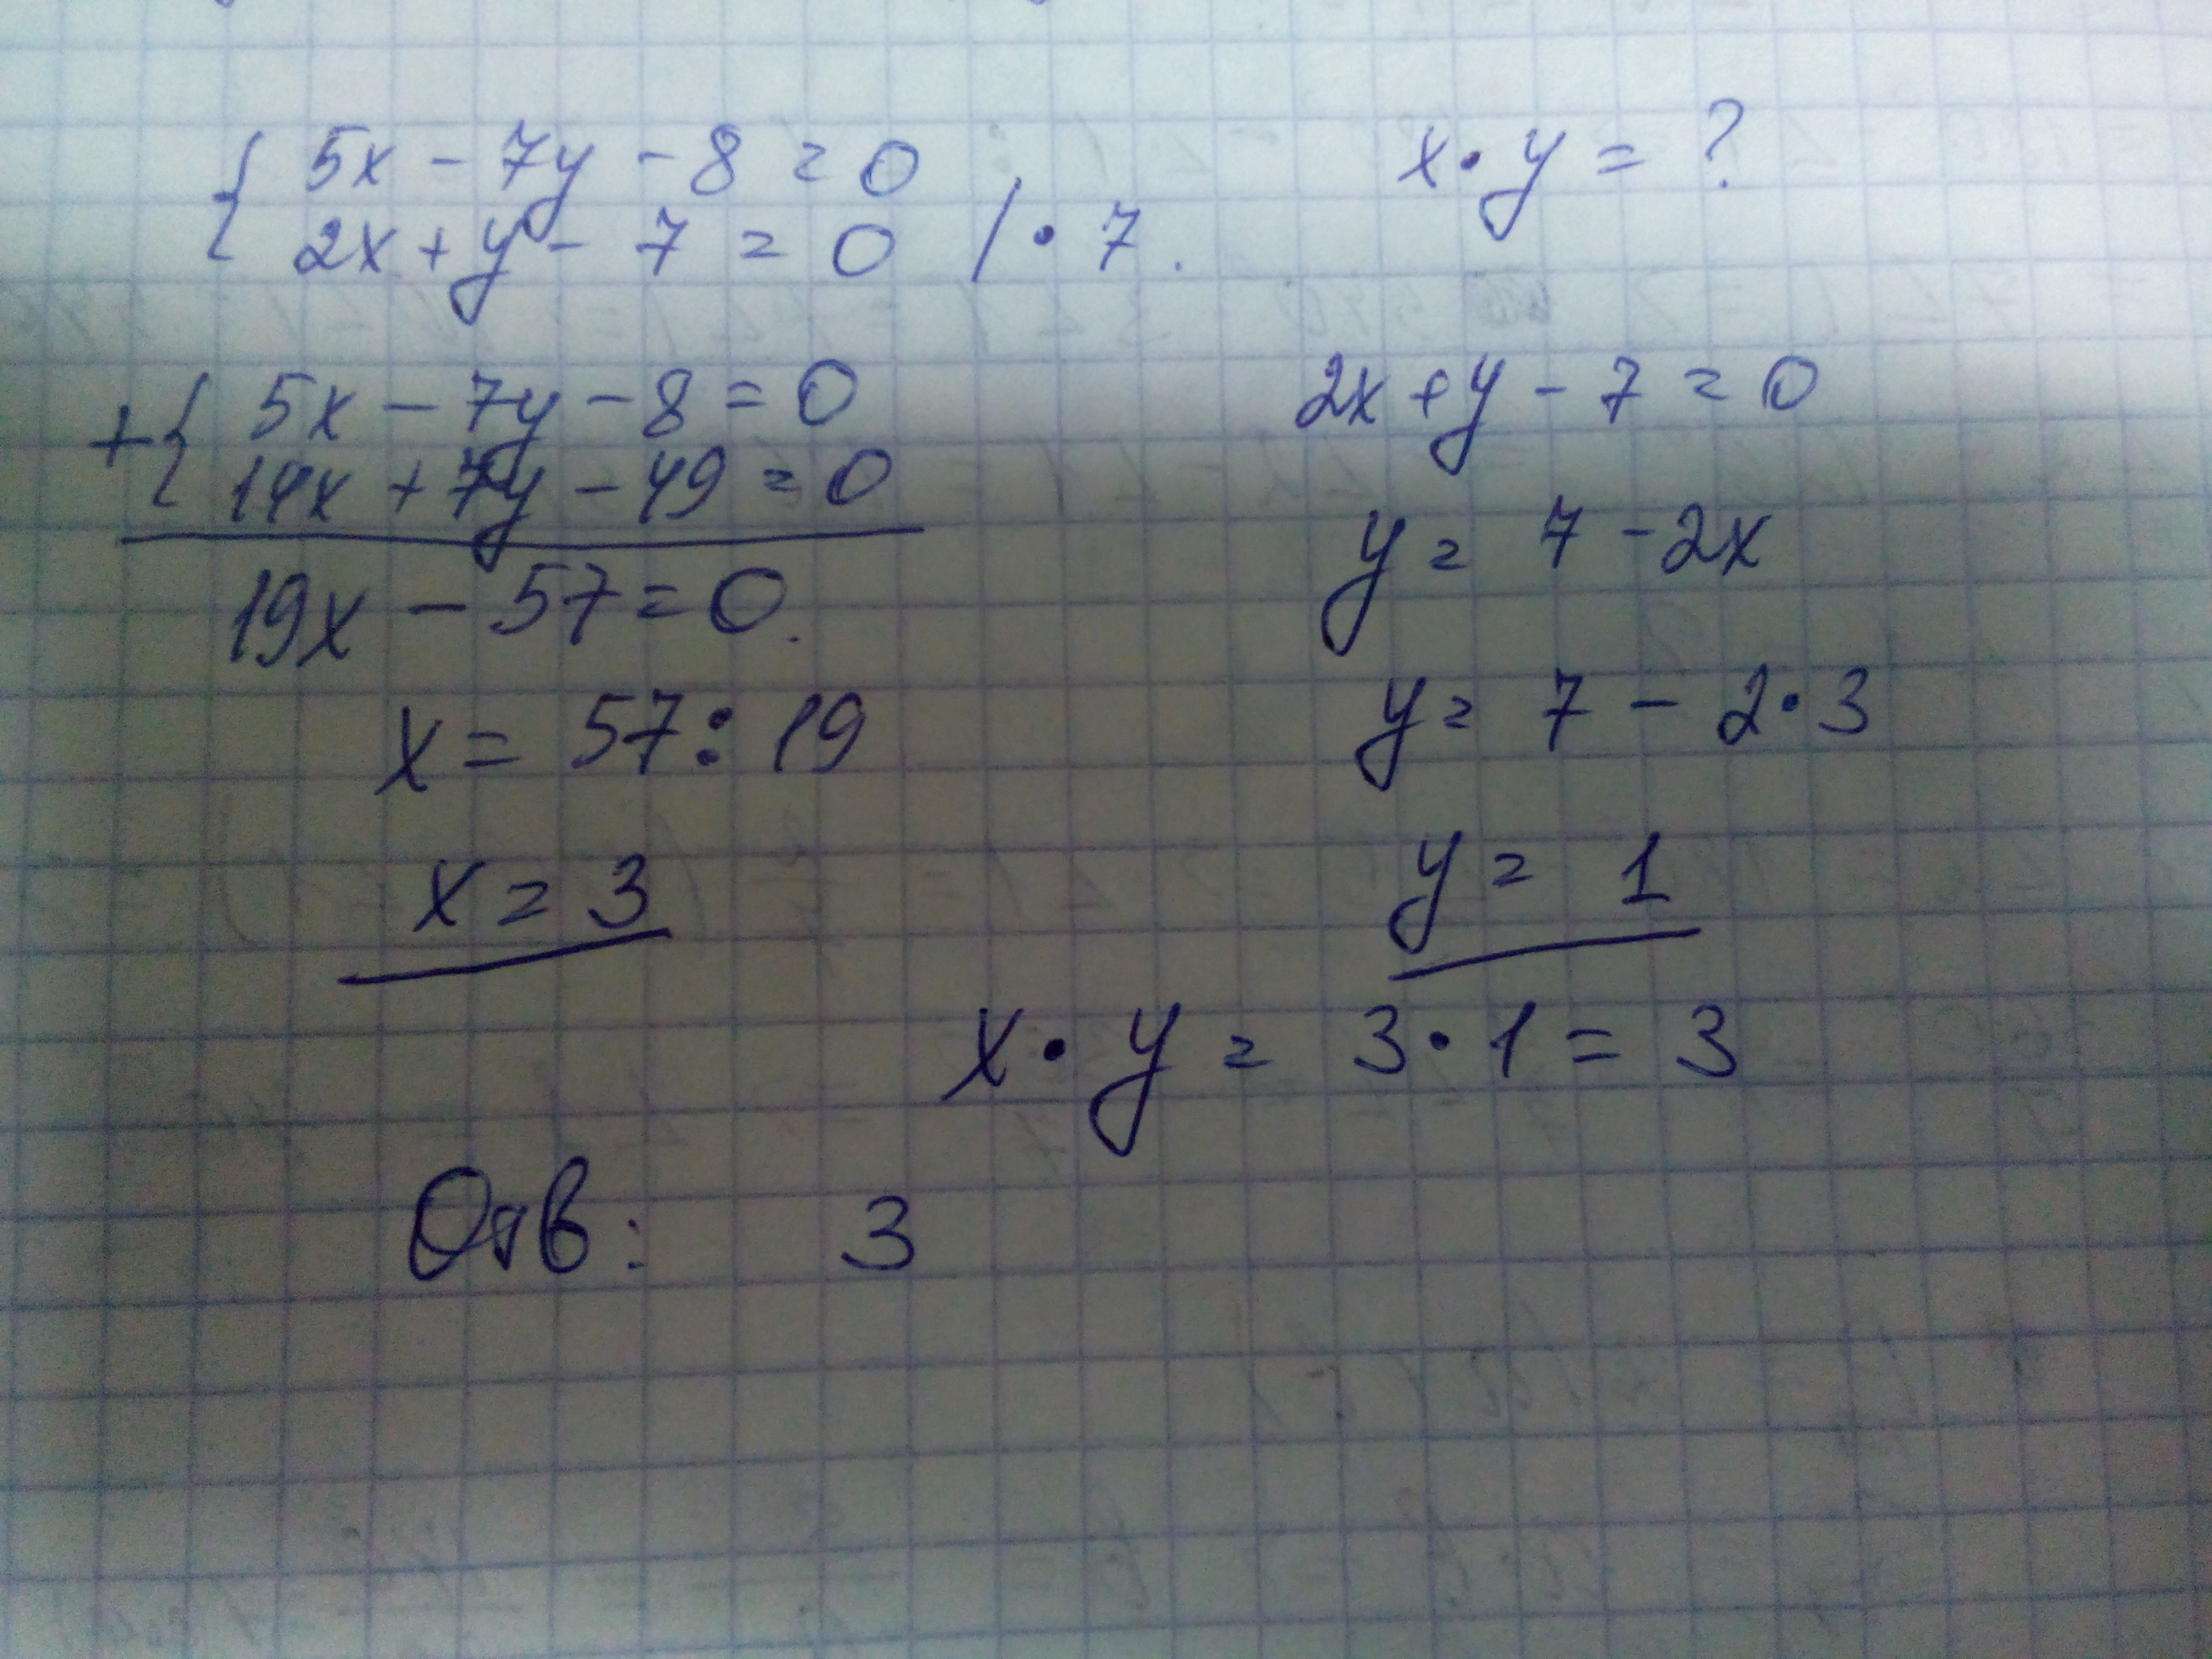 { 5x - 7y - 8 = 0
2x + y - 7 = 0 / · 7.
x · y = ?
+ { 5x - 7y - 8 = 0
14x + 7y - 49 = 0
19x - 57 = 0.
x = 57 : 19
x = 3
2x + y - 7 = 0
y = 7 - 2x
y = 7 - 2 · 3
y = 1
x · y = 3 · 1 = 3
Отв: 3